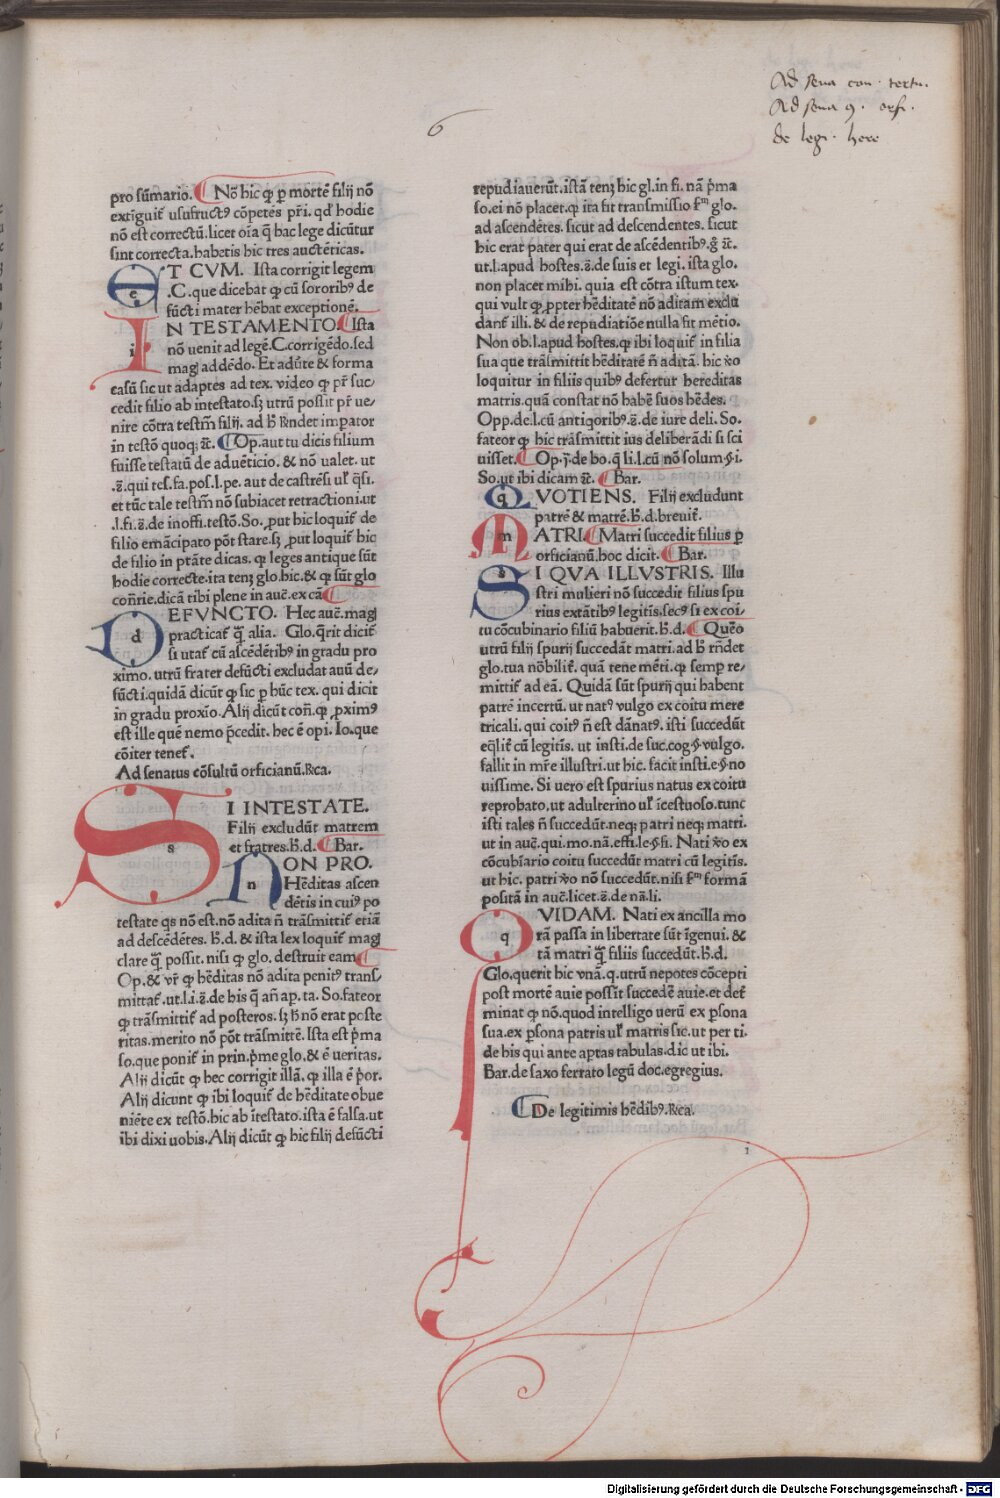 Ad sena con. tertu.
Ad sena ꝯ. orfi.
de legi. here
6
pro sūmario. Nō hic ꝙ p mortē filij nō
extīguit̄ usufructꝰ cōpetēs pr̄i. qd' hodie
nō est correctū. licet oīa q̄ hac lege dicūtur
sint correcta. habetis hic tres auctēticas.
ET CVM. Ista corrigit legem
.C. que dicebat ꝙ cū sororibꝰ de
fūcti mater hēbat exceptionē.
IN TESTAMENTO. Ista
nō uenit ad legē. C. corrigēdo. sed
mag̣ addēdo. Et adūte & forma
casū sic ut adaptes ad tex. video ꝙ pr̄ suc/
cedit filio ab intestato. sꝫ utrū possit pr̄ ue/
nire cōtra testm̄ filij. ad h̄ r̄ndet impator
in testō quoqꝫ ⁊c̄. Op. aut tu dicis filium
fuisse testatū de aduēticio. & nō ualet. ut
.ꝫ. qui tes. fa. pos. l. pe. aut de castrēsi ul' q̄si.
et tūc tale testm̄ nō subiacet retractioni. ut
.l. fi. ꝫ. de inoffi. testō. So. ꝓut hic loquit̄ de
filio emācipato pōt stare. sꝫ ꝓut loquit̄ hic
de filio in ptāte dicas. ꝙ leges antique sūt
hodie correcte. ita tenꝫ glo. hic. & ꝙ sūt glo
con̄rie. dicā tibi plene in auc̄. ex cā
DEFVNCTO. Hec auc̄. mag̣
practicat̄ q̄ alia. Glo. q̄rit dicit̄
si utat̄ cū ascēdētibꝰ in gradu pro
ximo. utrū frater defūcti excludat auū de/
fūcti. quidā dicūt ꝙ sic p hūc tex. qui dicit
in gradu proxīo. Alij dicūt con̄. ꝙ ꝓximꝰ
est ille quē nemo p̄cedit. hec ē opi. Io. que
cōiter tenet̄.
Ad senatus cōsultū orficianū. Rca.
SI INTESTATE.
Filij excludūt matrem
et fratres. h. d. Bar.
NON PRO.
Hēditas ascen
dētis in cuiꝰ po
testate qs nō est. nō adita n̄ trāsmittit̄ etiā
ad descēdētes. h. d. & ista lex loquit̄ mag̣
clare q̄ possit. nisi ꝙ glo. destruit eam
Op. & vr̄ ꝙ hēditas nō adita penitꝰ trans/
mittat̄. ut. l. i. ꝫ. de his q̄ an̄ ap. ta. So. fateor
ꝙ trāsmittit̄ ad posteros. sꝫ h̄ nō erat poste
ritas. merito nō pōt trāsmittē. Ista est p̄ma
so. que ponit̄ in prin. p̄me glo. & ē ueritas.
Alij dicūt ꝙ hec corrigit illā. ꝙ illa ē p̄or.
Alij dicunt ꝙ ibi loquit̄ de hēditate obue
niēte ex testō. hic ab ītestato. ista ē falsa. ut
ibi dixi uobis. Alij dicūt ꝙ hic filij defūcti
repudiauerūt. istā tenꝫ hic gl. in fi. nā p̄ma
so. ei nō placet. ꝙ ita fit transmissio s'm glo.
ad ascendētes. sicut ad descendentes. sicut
hic erat pater qui erat de ascēdentibꝰ. g̊ ⁊c̄.
ut. l. apud hostes. ꝫ. de suis et legi. ista glo.
non placet mihi. quia est cōtra istum tex.
qui vult ꝙ ꝓpter hēditatē nō aditam exclu
dant̄ illi. & de repudiatiōe nulla fit mētio.
Non ob. l. apud hostes. ꝙ ibi loquit̄ in filia
sua que trāsmittit hēditatē n̄ aditā. hic v̊o
loquitur in filiis quibꝰ defertur hereditas
matris. quā constat nō habē suos hēdes.
Opp. de. l. cū antiqoribꝰ. ꝫ. de iure deli. So.
fateor ꝙ hic trāsmittit ius deliberādi si sci
uisset. Op. ꝫ. de bo. q̄ li. l. cū nō solum. §. i.
So. ut ibi dicam ⁊c̄. Bar.
QVOTIENS. Filij excludunt
patrē & matrē. h. d. breuit̄.
MATRI. Matri succedit filius p
orficianū. hoc dicit. Bar.
SI QVA ILLVSTRIS. Illu
stri mulieri nō succedit filius spu
rius extātibꝰ legitīs. secꝰ si ex coi/
tu cōcubinario filiū habuerit. h. d. Quēo
utrū filij spurij succedāt matri. ad h̄ r̄ndet
glo. tua nōbilit̄. quā tene mēti. ꝙ semp re/
mittit̄ ad eā. Quidā sūt spurij qui habent
patrē incertū. ut natꝰ vulgo ex coitu mere
tricali. qui coitꝰ n̄ est dānatꝰ. isti succedūt
eq̄lit̄ cū legitīs. ut insti. de suc. cog. §. vulgo.
fallit in mr̄e illustri. ut hic. facit insti. e. §. no
uissime. Si uero est spurius natus ex coitu
reprobato. ut adulterino ul' īcestuoso. tunc
isti tales n̄ succedūt. neqꝫ patri neqꝫ matri.
ut in auc̄. qui. mo. nā. effi. le. §. fi. Nati v̊o ex
cōcubīario coitu succedūt matri cū legitīs.
ut hic. patri v̊o nō succedūt. nisi s'm formā
positā in auc̄. licet. ꝫ. de nā. li.
QVIDAM. Nati ex ancilla mo
rā passa in libertate sūt īgenui. &
tā matri q̄ filiis succedūt. h. d.
Glo. querit hic vnā. q. utrū nepotes cōcepti
post mortē auie possīt succedē auie. et det̄
minat ꝙ nō. quod intelligo uerū ex p̄sona
sua. ex p̄sona patris ul' matris sic. ut per ti.
de his qui ante aptas tabulas. dic ut ibi.
Bar. de saxo ferrato legū doc. egregius.
De legitimis hēdibꝰ. Rca.
1
Digitalisierung gefördert durch die Deutsche Forschungsgemeinschaft - DFG